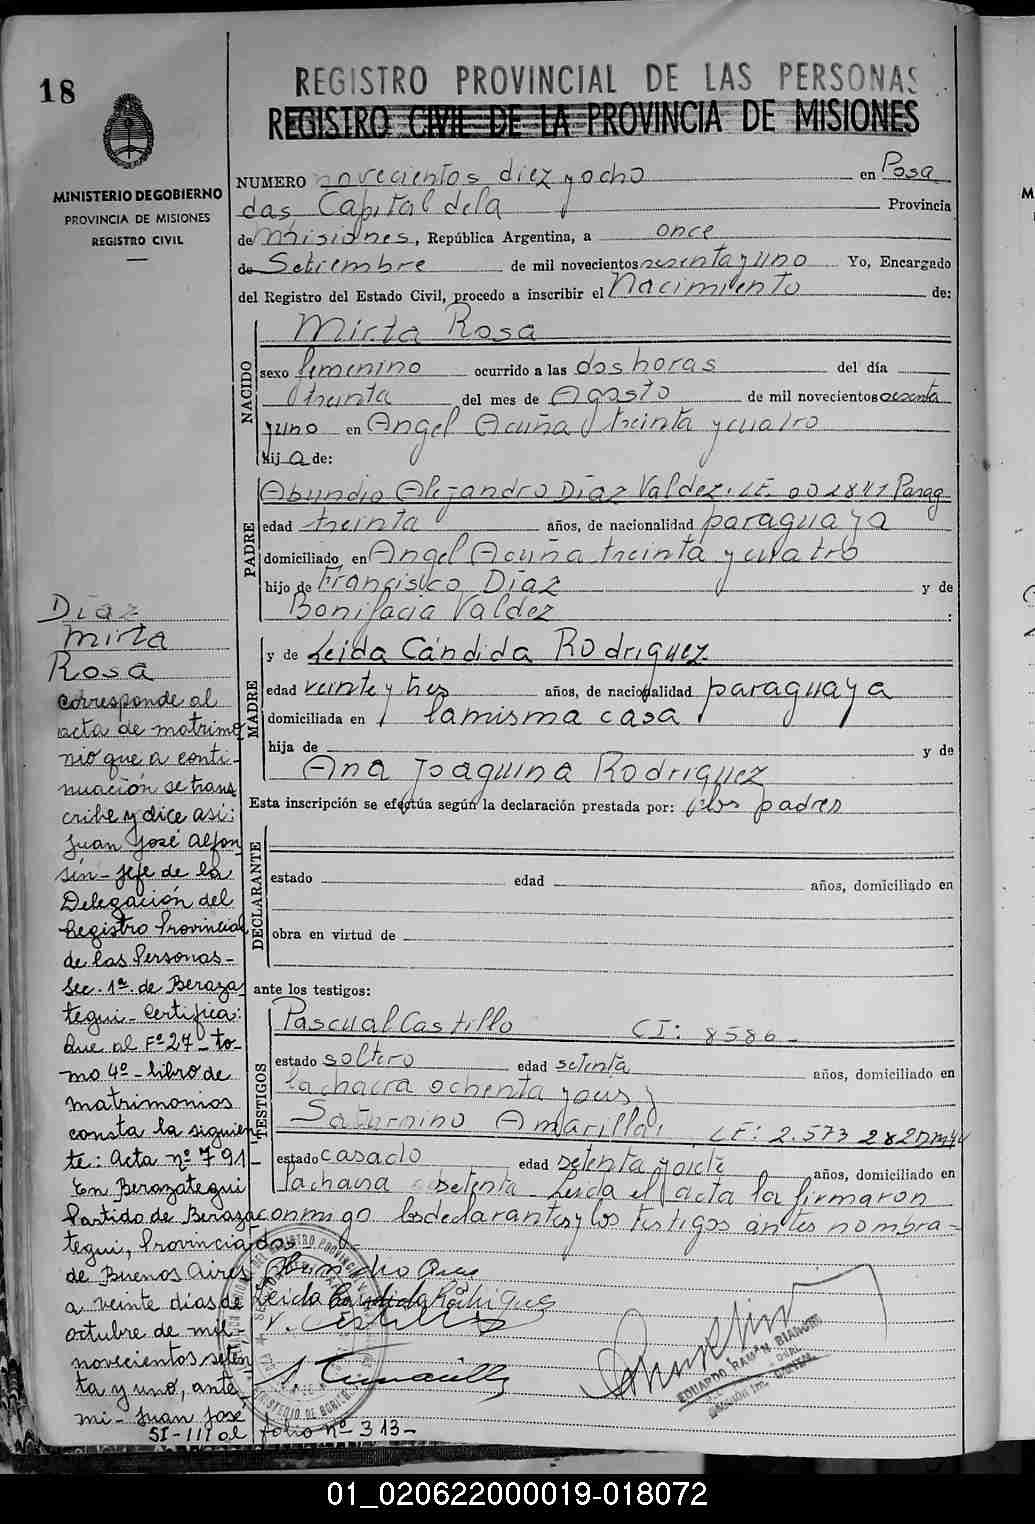 18
MINISTERIO DE GOBIERNO
PROVINCIA DE MISIONES
REGISTRO CIVIL
REGISTRO PROVINCIAL DE LAS PERSONAS
REGISTRO CIVIL DE LA PROVINCIA DE MISIONES
NUMERO novecientos diez y ocho en Posa
das, Capital dela Provincia
de Misiones, República Argentina, a once
de Setiembre de mil novecientos sesenta y uno Yo, Encargado
del Registro del Estado Civil, procedo a inscribir el Nacimiento de:
NACIDO
Mirta Rosa
sexo femenino ocurrido a las dos horas del día
treinta del mes de Agosto de mil novecientos sesenta
y uno en Angel Acuña treinta y cuatro
hija de:
PADRE
Abundio Alejandro Díaz Valdez. LE. 002841 Parag
edad treinta años, de nacionalidad paraguaya
domiciliado en Angel Acuña treinta y cuatro
hijo de Francisco Díaz y de
Bonifacia Valdez :
MADRE
y de Leida Cándida Rodriguez
edad veinte y tres años, de nacionalidad paraguaya
domiciliada en la misma casa
hija de y de
Ana Joaquina Rodriguez
Esta inscripción se efectúa según la declaración prestada por: los padres
DECLARANTE
estado edad años, domiciliado en
obra en virtud de
ante los testigos:
TESTIGOS
Pascual Castillo CI: 8586-
estado soltero edad setenta años, domiciliado en
la chacra ochenta y
Saturnino Amarilla, LE: 2.573 282
estado casado edad setenta y años, domiciliado en
la setenta - Leida el acta la firmaron
conmigo los declarantes y los testigos antes nombra-
dos
Leida Candida Rodriguez
EDUARDO RAMÓN BIANCHI
Díaz
Mirta
Rosa
Corresponde al
acta de matrimo
nio que a conti-
nuación se trans
cribe y dice así:
Juan José Alfon
sín - Jefe de la
Delegación del
Registro Provincial
de las Personas-
Sec. 1ª. de Beraza
tegui - Certifica:
Que al Fº 27 - to-
mo 4º - libro de
matrimonios
consta la siguien
te: Acta nº 791-
En Berazategui
Partido de Beraza
tegui, Provincia
de Buenos Aires
a veinte días de
octubre de mil
novecientos seten
ta y uno, ante
mi - Juan José
SI - 111 al folio nº 313-
01_020622000019-018072